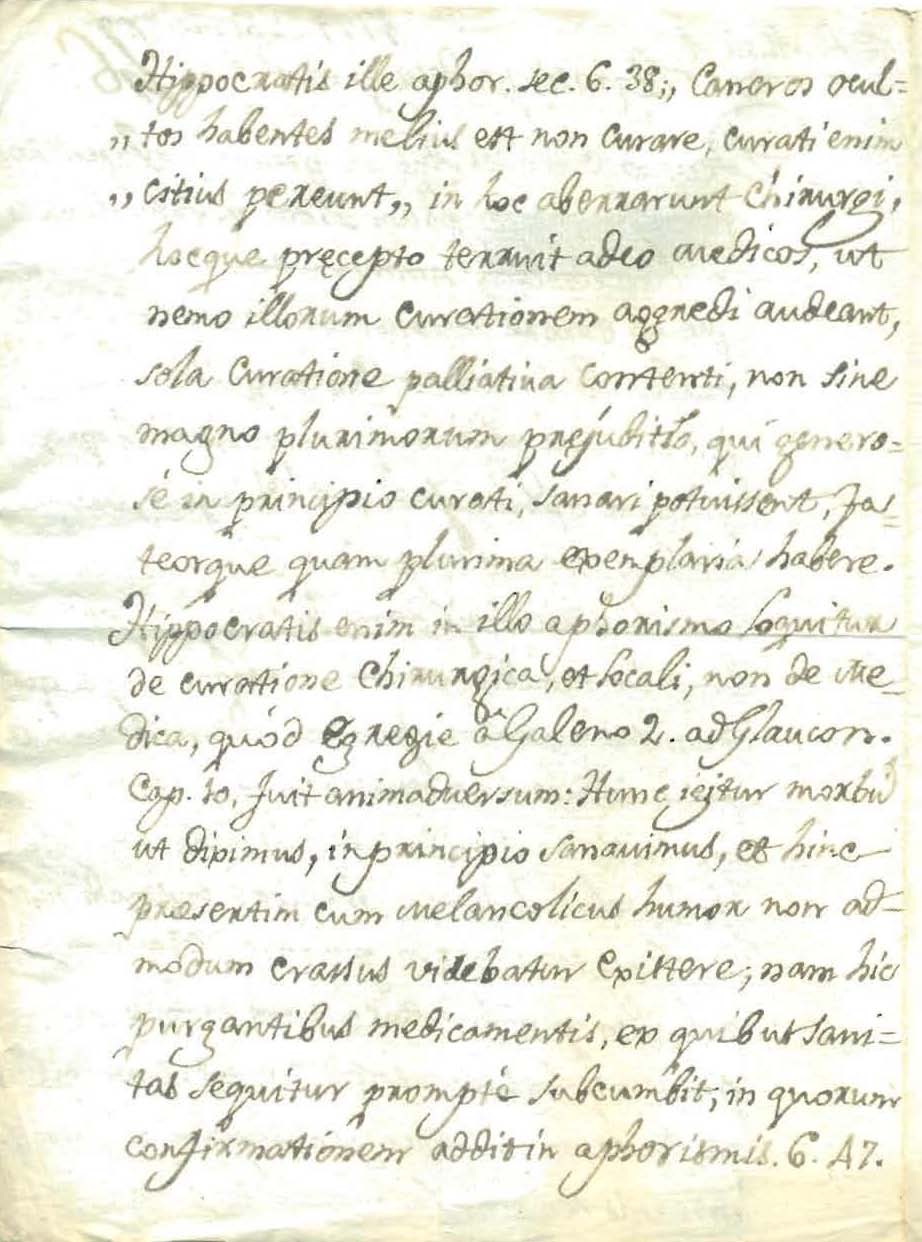 Hippocratis ille aphor. sec. 6. 38;,, Cancros ocul=
,, tos habentes melius est non curare, curati enim
,, citius pereunt,, in hoc aberrarunt Chirurgi,
hocque pręcepto terruit adeo Medicos, ut
nemo illorum curationem aggredi audeant,
sola Curatione palliativa Contenti, non sine
magno plurimorum qui genero=
sé in principio curati, sanari potuissent, fa=
teorque quam plurima exemplaria habere.
Hippocratis enim in illo aphorismo loquitur
de curatione Chirurgica, et locali, non de Me=
dica, quód Egregie á Galeno 2. ad Glaucon.
Cap. 10. fuit animadversum: Hunc igitur morbū
ut diximus, in principio sanavimus, et hinc
præsertim cum Melancolicus humor non ad=
modum crassus videbatur Existere; nam hic
purgantibus medicamentis, ex quibus sani=
tas sequitur prompté subcumbit; in quorum
confirmationem addit in aphorismis. 6. 47.